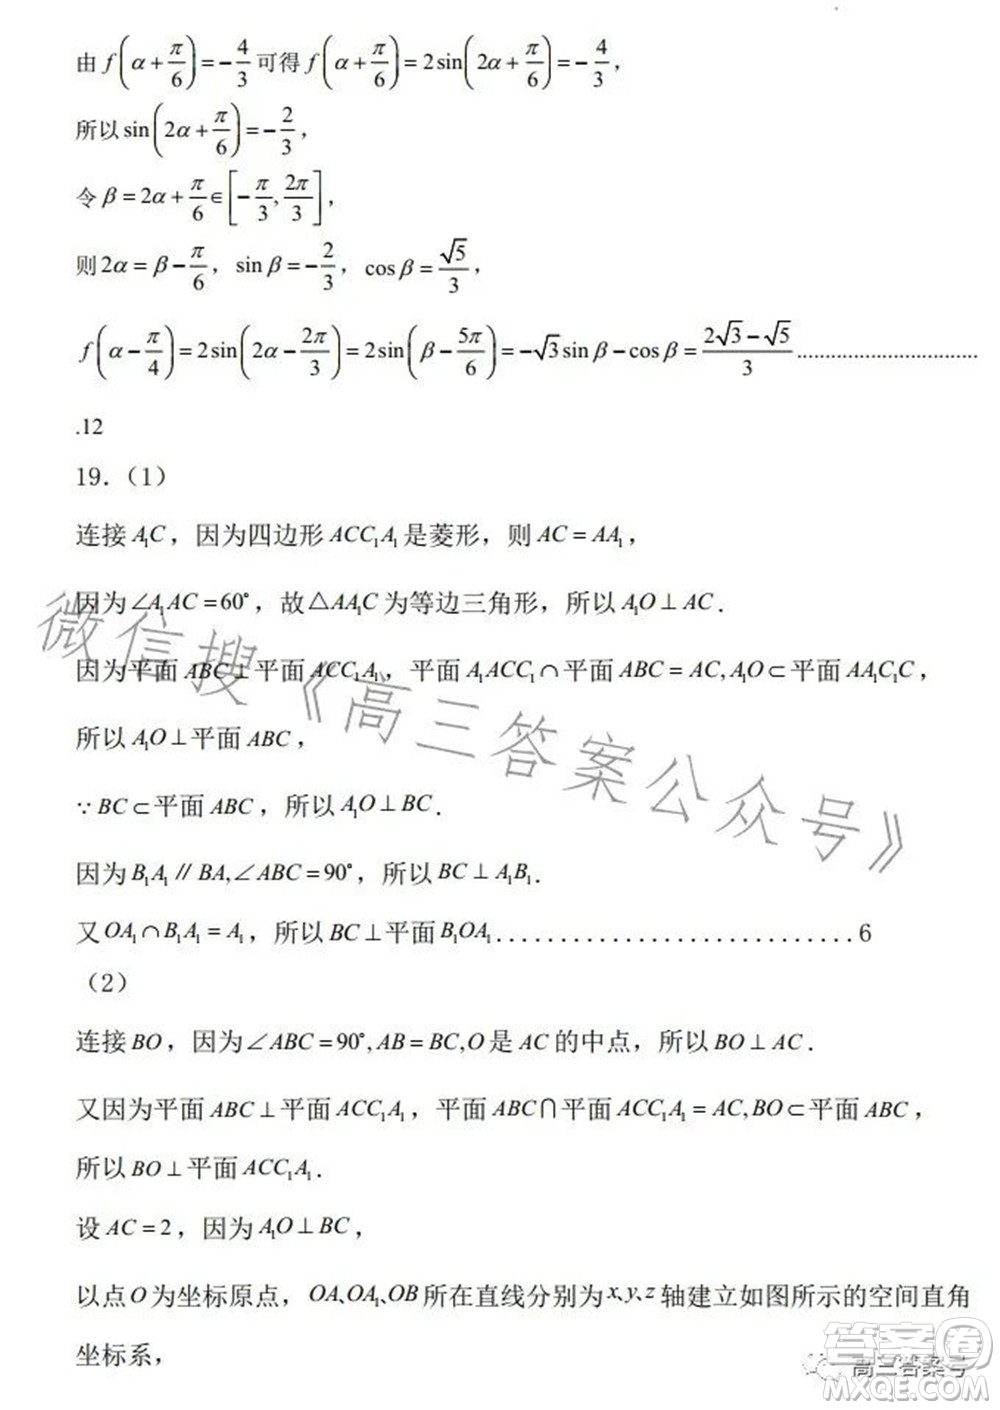 由 f(α+π/6)=-4/3 可得 f(α+π/6)=2sin(2α+π/6)=-4/3，
所以 sin(2α+π/6)=-2/3，
令 β=2α+π/6∈[-π/3,2π/3]，
则 2α=β-π/6，sinβ=-2/3，cosβ=√5/3，
f(α-π/4)=2sin(2α-2π/3)=2sin(β-5π/6)=-√3sinβ-cosβ=(2√3-√5)/3................................
.12
19.（1）
连接 A₁C，因为四边形 ACC₁A₁ 是菱形，则 AC=AA₁，
因为∠A₁AC=60°，故△AA₁C 为等边三角形，所以 A₁O⊥AC．
因为平面 ABC⊥平面 ACC₁A₁，平面 A₁ACC₁∩平面 ABC=AC,A₁O⊂平面 AA₁C₁C，
所以 A₁O⊥平面 ABC，
∵BC⊂平面 ABC，所以 A₁O⊥BC．
因为 B₁A₁∥BA,∠ABC=90°，所以 BC⊥A₁B₁．
又 OA₁∩B₁A₁=A₁，所以 BC⊥平面 B₁OA₁...........................6
（2）
连接 BO，因为∠ABC=90°,AB=BC,O 是 AC 的中点，所以 BO⊥AC．
又因为平面 ABC⊥平面 ACC₁A₁，平面 ABC∩平面 ACC₁A₁=AC,BO⊂平面 ABC，
所以 BO⊥平面 ACC₁A₁．
设 AC=2，因为 A₁O⊥BC，
以点 O 为坐标原点，OA、OA₁、OB 所在直线分别为 x、y、z 轴建立如图所示的空间直角
坐标系，
微信搜《高三答案公众号》
高三答案号
答案圈
MXQE.COM